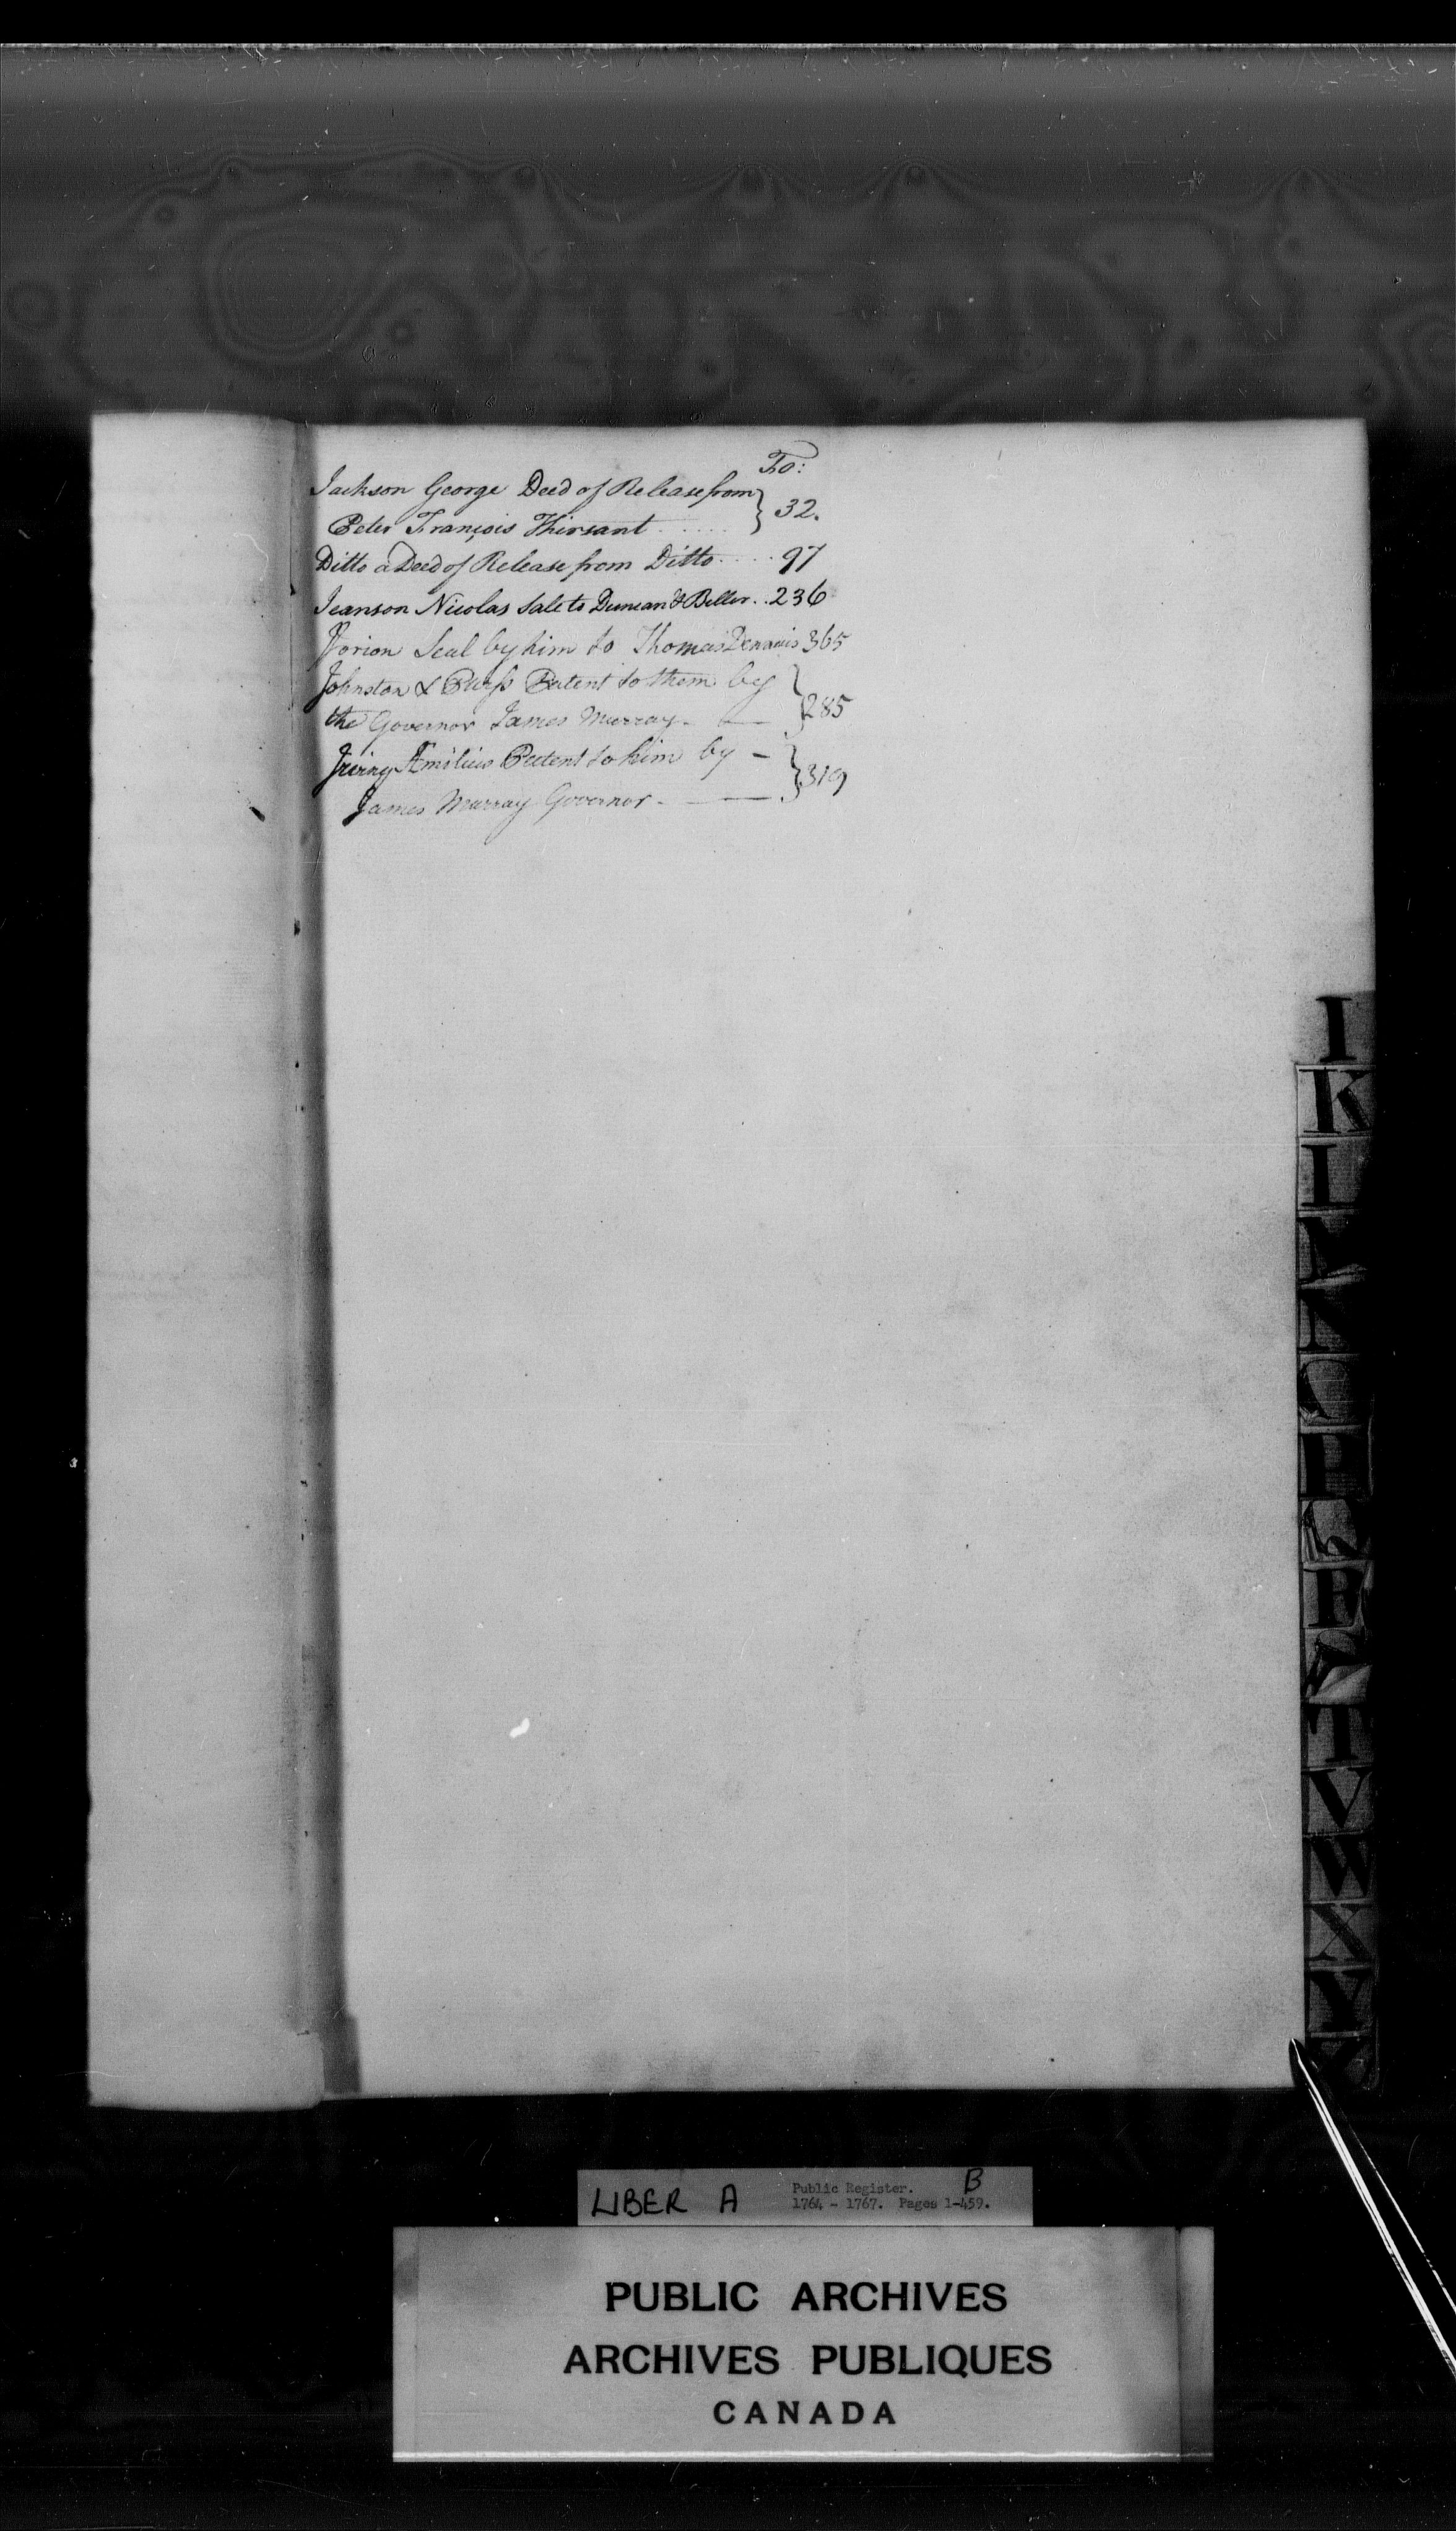 Fo:
Jackson George Deed of Release from } 32.
Peter François Thirsant ......
Ditto a Deed of Release from Ditto .... 97
Jeanson Nicolas Sale to Duncan & Beller .. 236
Jorion Seal by him to Thomas Dennis 365
Johnston & Purss Patent to them by } 285
the Governor James Murray - —
Irving Æmilius Patent to him by - } 319
James Murray Governor - —
I
K
L
M
N
R
T
V
W
X
Y
LIBER A
Public Register. B
1764 - 1767. Pages 1-459.
PUBLIC ARCHIVES
ARCHIVES PUBLIQUES
CANADA